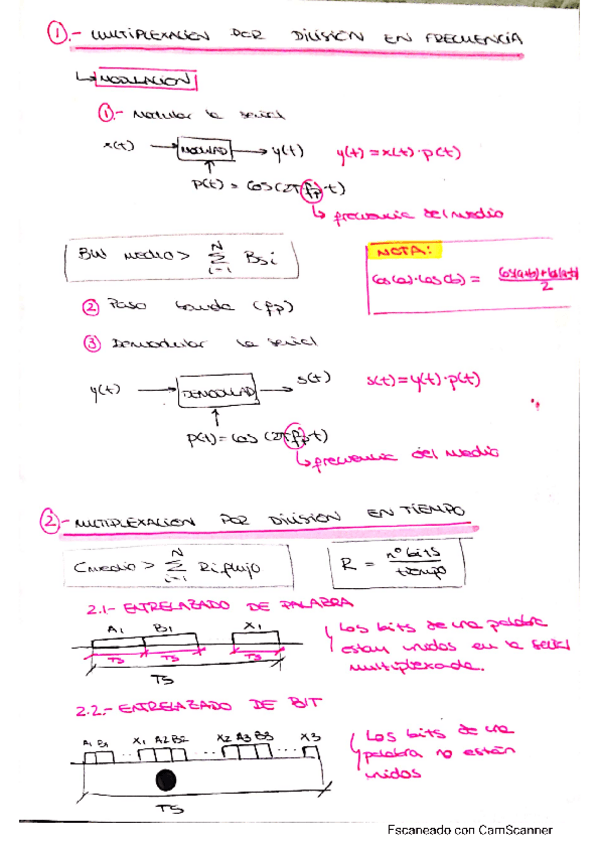 1.- MULTIPLEXACION POR DIVISIÓN EN FRECUENCIA
↳ MODULACION
1.- Modular la señal
x(t) → MODULAD → y(t) y(t) = x(t)·p(t)
p(t) = cos(2π fp t)
↳ frecuencia del medio
BW medio > Σ i=1 N Bsi
NOTA:
cos(a)·cos(b) = cos(a+b)+cos(a-b) / 2
2 Paso banda (fp)
3 Demodular la señal
y(t) → DEMODULAD → s(t) s(t) = y(t)·p(t)
p(t) = cos(2π fp t)
↳ frecuencia del medio
2.- MULTIPLEXACION POR DIVISIÓN EN TIEMPO
Cmedio > Σ i=1 N Ri flujo
R = nº bits / tiempo
2.1- ENTRELAZADO DE PALABRA
A1 B1 X1
Ts Ts Ts
Ts
Los bits de una palabra
estan unidos en la señal
multiplexada.
2.2.- ENTRELAZADO DE BIT
A1 B1 X1 A2 B2 X2 A3 B3 X3
Ts
Los bits de una
palabra no están
unidos
Escaneado con CamScanner